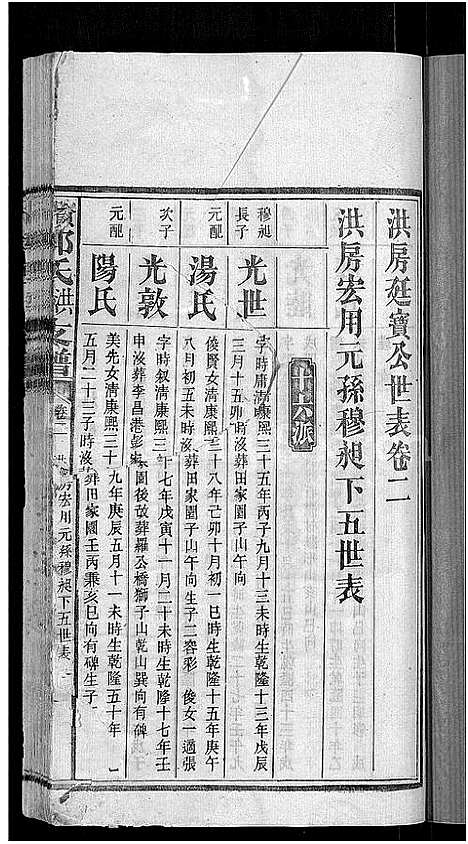 洪房廷寶公世表卷二
洪房宏用元孫穆昶下五世表
十六派
穆昶長子
光世
字時庸清康熙三十五年丙子九月十三未時生乾隆十三年戊辰
三月十五卯時沒葬田家園子山午向
元配
湯氏
俊賢女清康熙三十八年己卯十月初一巳時生乾隆十五年庚午
八月初五未時沒葬田家園子山午向生子二容彩 俊女一適張
次子
光敦
字時叙清康熙三十七年戊寅十一月二十未時生乾隆十七年壬
申沒葬李昌港彭家園後改葬羅公橋獅子山乾山巽向有碑
元配
陽氏
美先女清康熙三十九年庚辰五月十一未時生乾隆五十年
五月二十三子時沒葬田家園壬丙兼亥巳向有碑生子
氏洪支譜
卷二
洪房宏用元孫穆昶下五世表
一